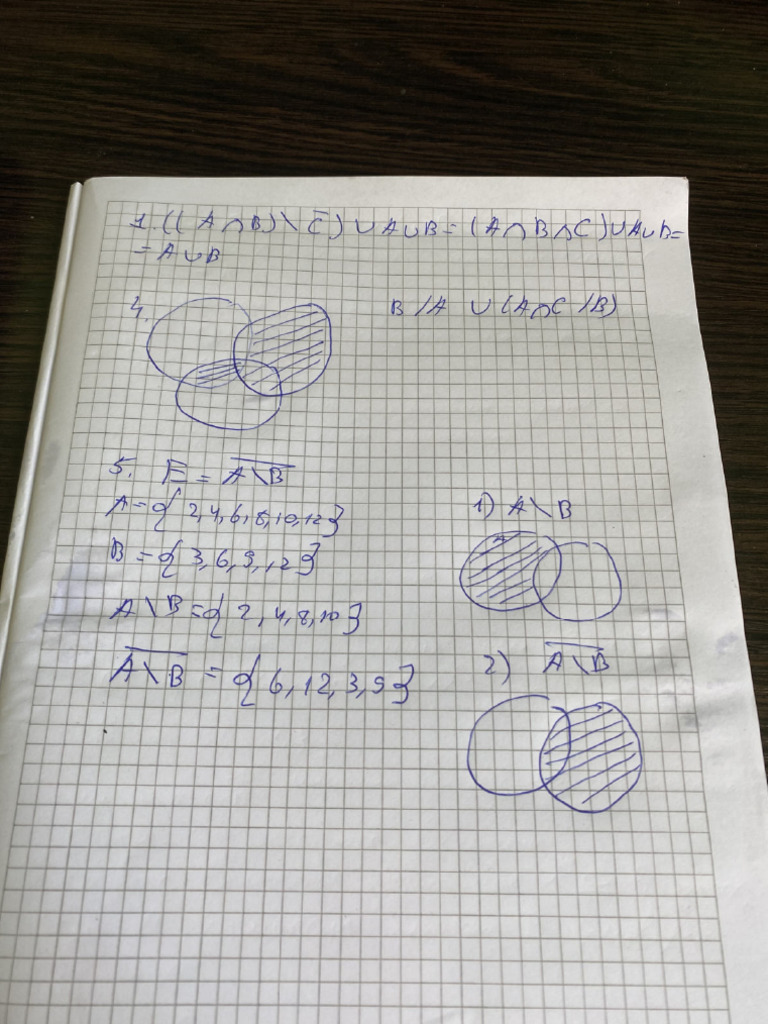 1. ((A∩B)\C̅)∪A∪B=(A∩B∩C)∪A∪B=
=A∪B
4.
B/A ∪(A∩C/B)
5. E = A\B̅
A={2,4,6,8,10,12}
1) A\B
B={3,6,9,12}
A\B={2,4,8,10}
A̅\̅B̅ = {6,12,3,9}
2) A̅\̅B̅